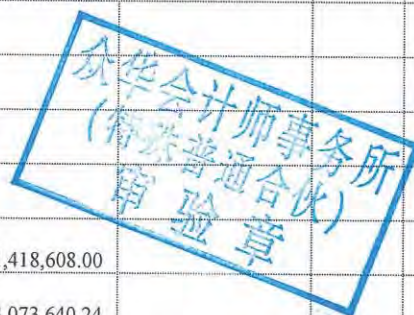 众华会计师事务所
(特殊普通合伙)
审验章
,418,608.00
,073,640.24